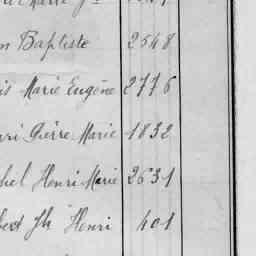 n Baptiste 2548
is Marie Eugène 2776
nri Pierre Marie 1832
hel Henri Marie 2631
bert Jh Henri 401